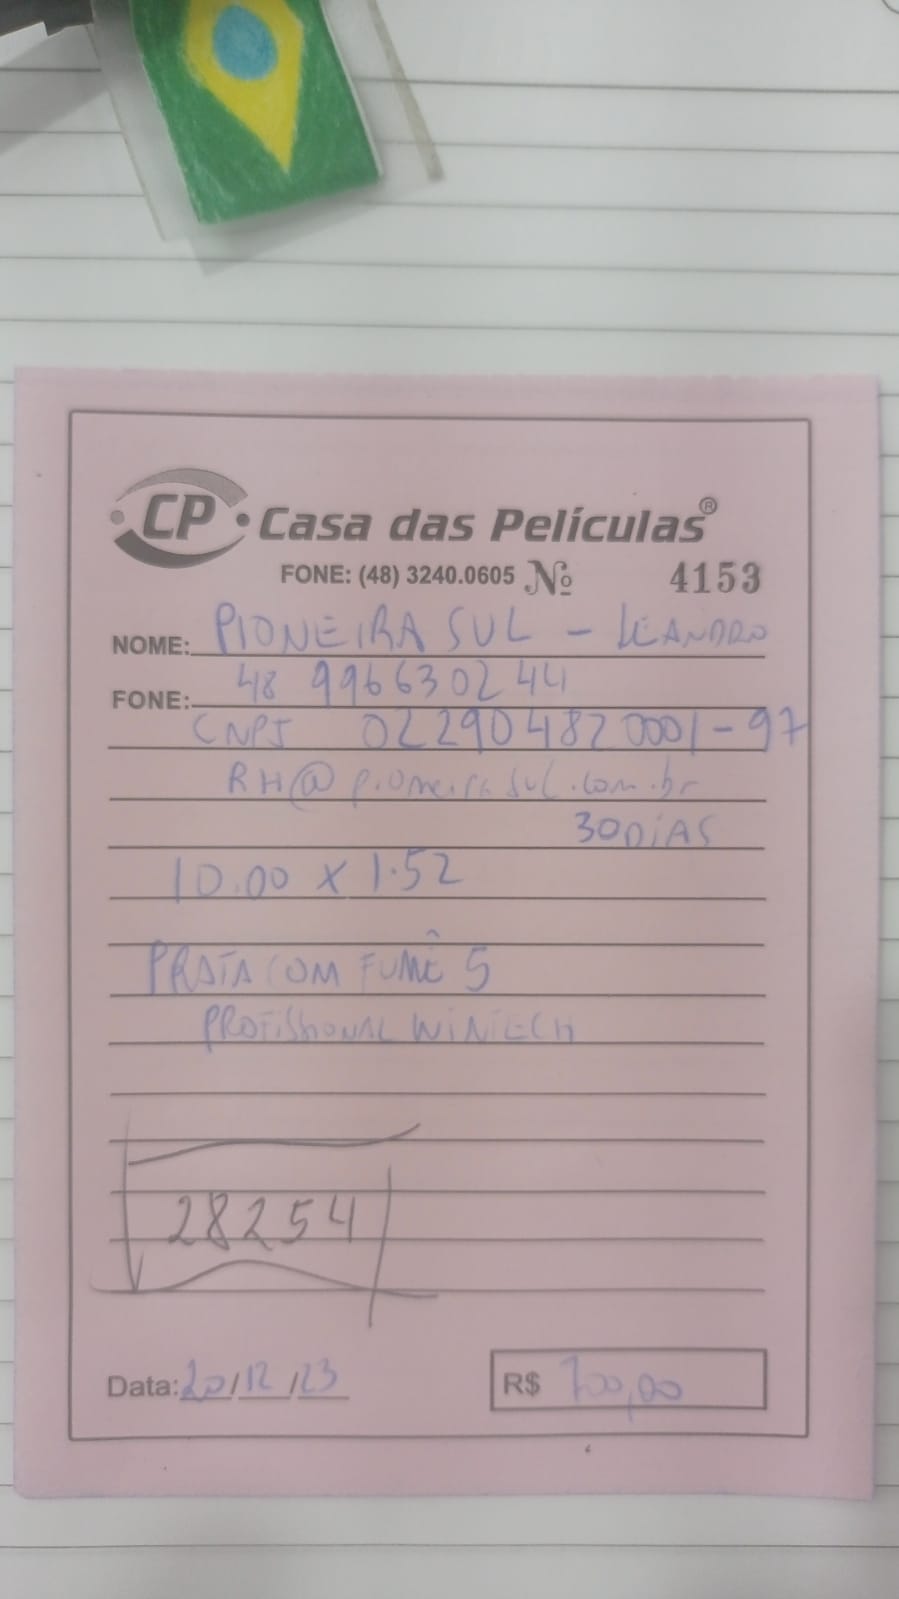 CP Casa das Películas®
FONE: (48) 3240.0605 Nº 4153
NOME: PIONEIRA SUL - LEANDRO
FONE: 48 996630244
CNPJ 022904820001-97
RH@pioneirasul.com.br
30 DIAS
10.00 x 1.52
PRATA COM FUMÊ 5
PROFISSIONAL WINTECH
28254
Data: 20/12/23 R$ 700,00